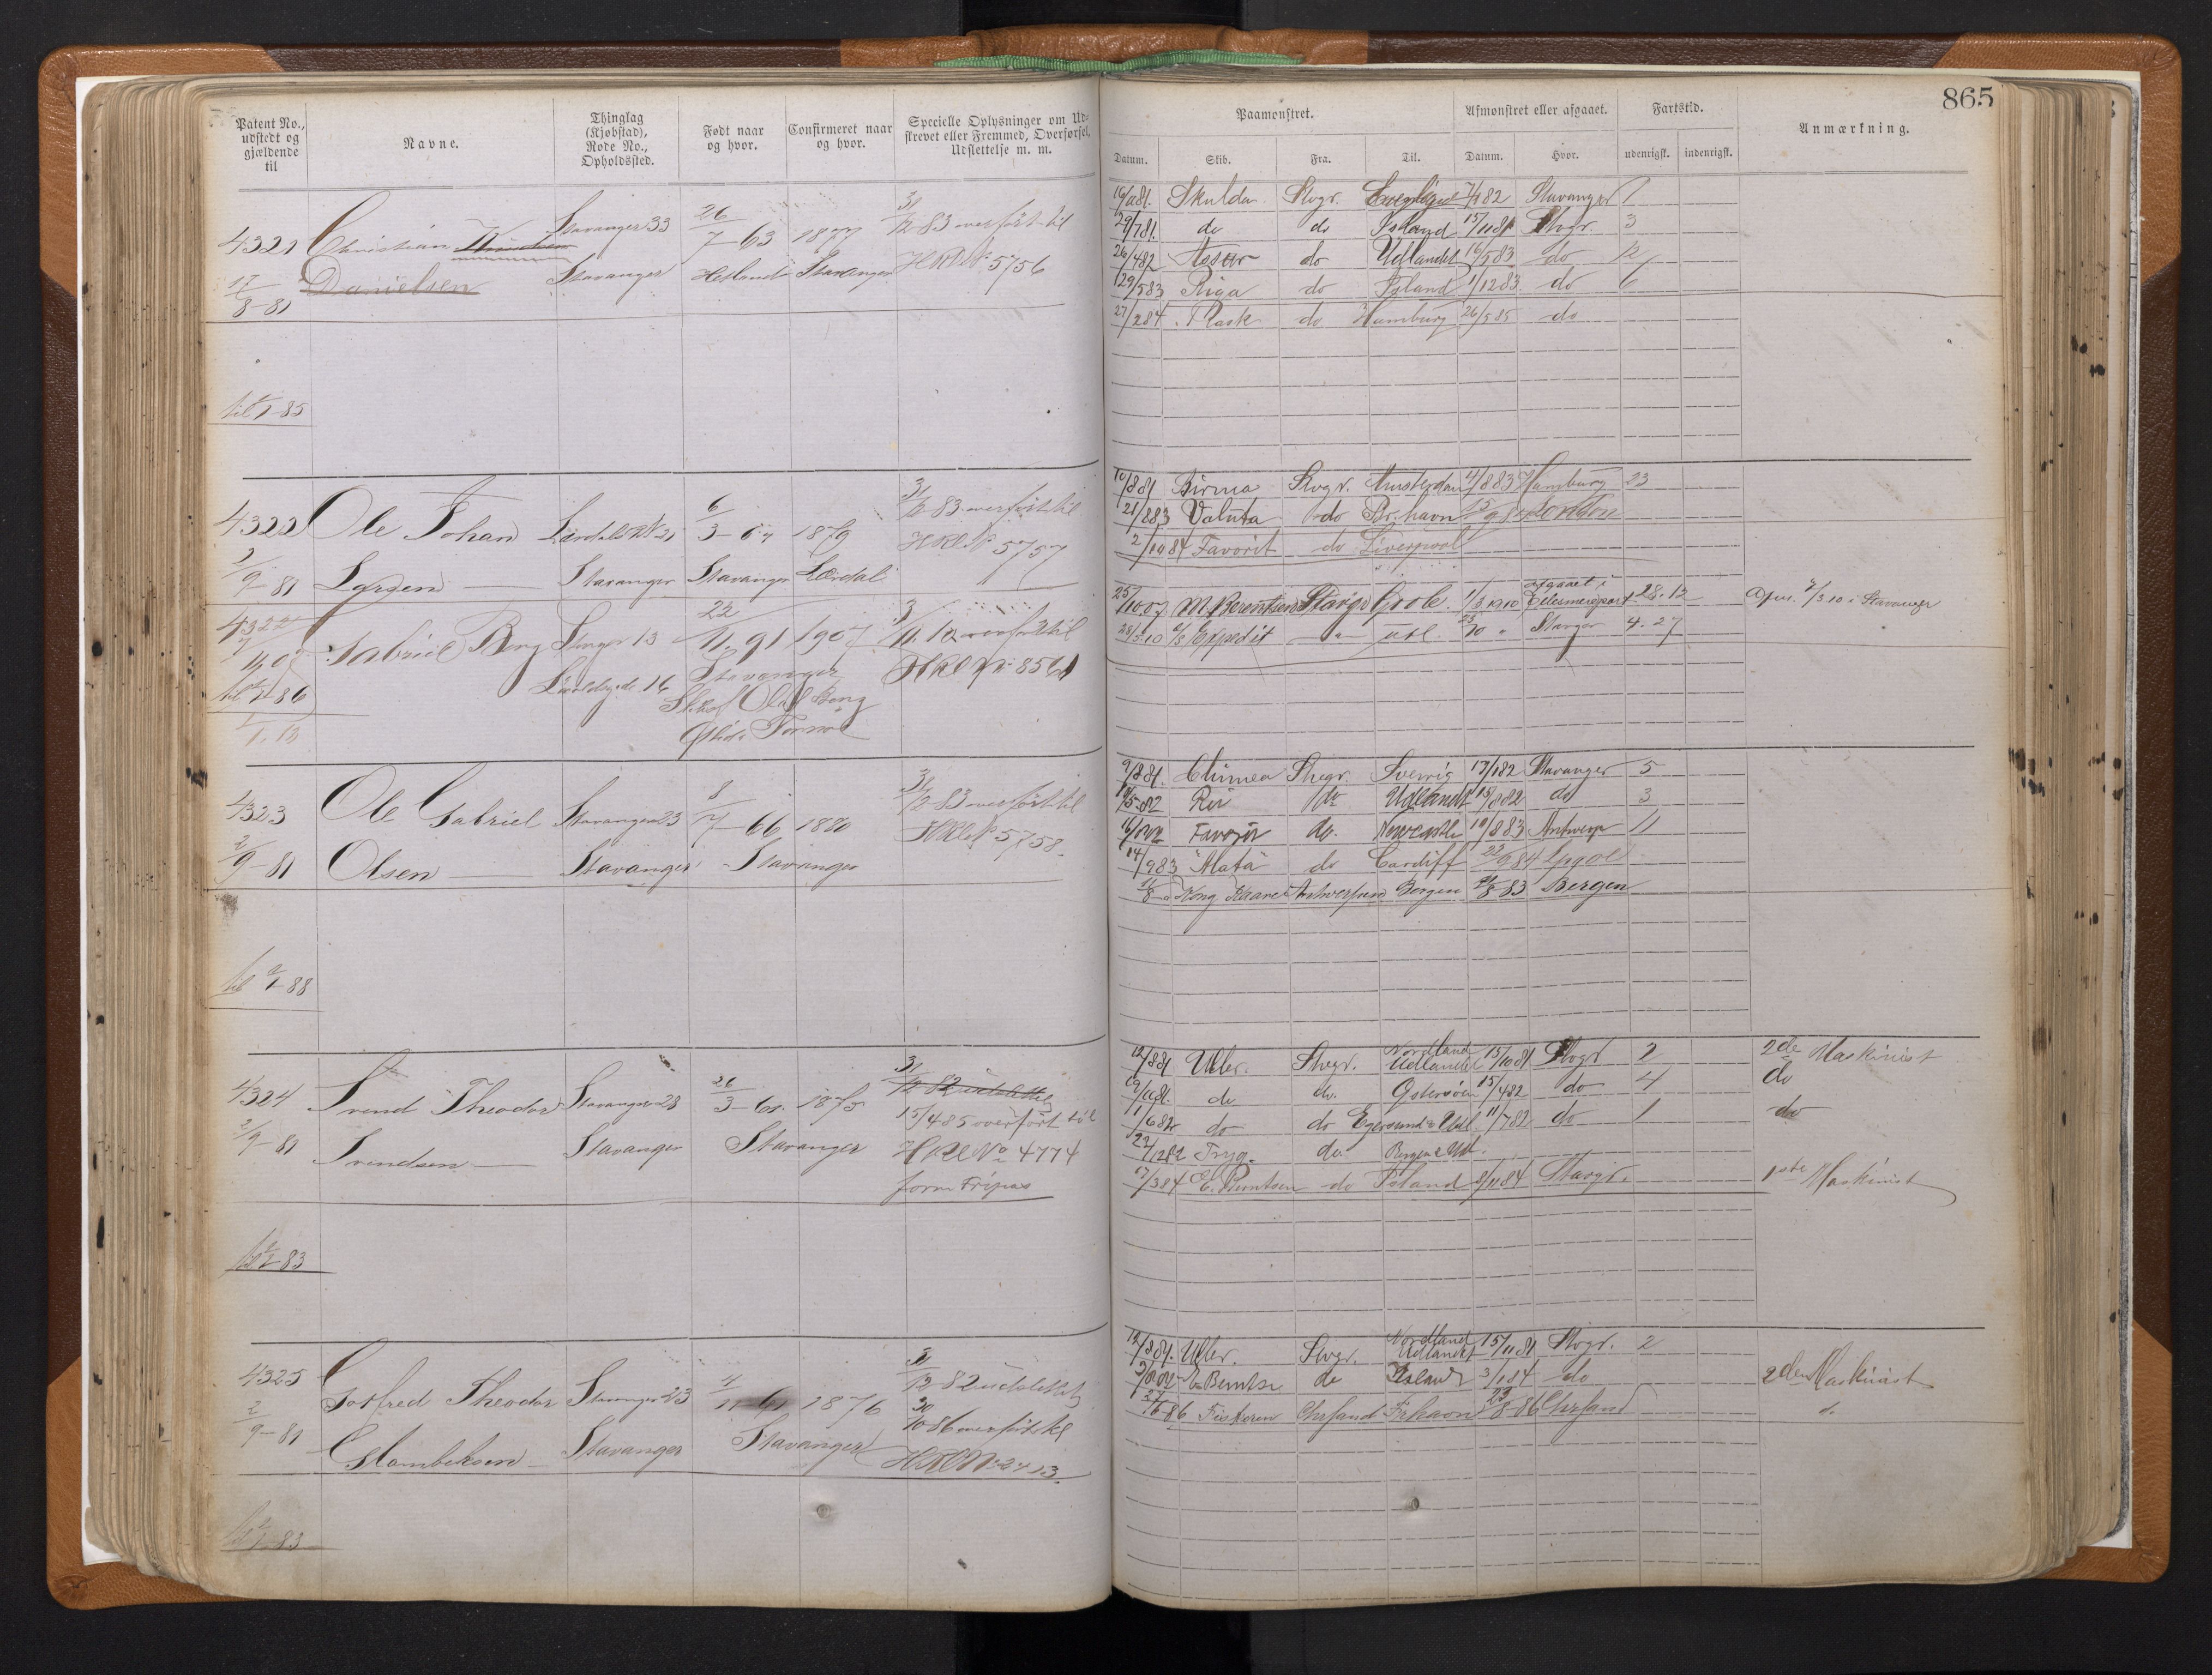 865
Patent No., udstedt og gjældende til
Navne.
Thinglag (Kjøbstad), Rode No., Opholdssted.
Født naar og hvor.
Confirmeret naar og hvor.
Specielle Oplysninger om Udskrevet eller Fremmed, Overførsel, Udslettelse m. m.
Paamønstret.
Afmønstret eller afgaaet.
Fartstid.
Anmærkning.
Datum. Skib. Fra. Til. Datum. Hvor. udenrigsk. indenrigsk.
4321 Christian Stavanger 33 26/7-63 1877 31/12 83 overført til
17/8-81 Danielsen Stavanger Hetland Stavanger HRL No 5756
til 1/1-85
Skulda Stvgr. 7/1 82 Stavanger 1
29/7 81. do do Island 15/11 81 Stvgr. 3
26/4 82 do Udlandet 16/5 83 do 12
29/5 83 Riga do Island 1/12 83 do 6
27/2 84 Rask do Hamburg 26/5 85 do
4322 Ole Johan 6/3- 1879 31/12-83 overført til
2/9-81 Stavanger Stavanger Lærdal HRL No 5757
til 1/1-86
10/8 81 Birma Stvgr. Amsterdam 11/8 83 Hamburg 23
21/2 83 Valuta do Br.havn London
2/10 84 Favorit do Liverpool
4322 Gabriel Berg Stvger 13 22/11.91 1907 overført til
Stavanger HRL No 8561
Olaf Berg
1/1.13
25/10 07 M. Berentsen Stavgr Goole. 1/3 1910 afgaaet i Ellesmereport 28.12 2/3 10 i Stavanger
28/5.10 S/S Expedit — " — utl. Stavger 4.27
4323 Ole Gabriel Stavanger 23 8/7-66 1880 31/12-83 overført til
2/9-81 Olsen Stavanger Stavanger HRL No 5758.
til 1/1-88
9/8 81. Stvgr. Sverig 13/1 82 Stavanger 5
do Udlandet 15/8 82 do 3
do. Newcastle 10/8 83 Antwerp 11
14/9 83 do Cardiff
Antwerpen Bergen 8-83 Bergen
4324 Svend Theodor Stavanger 28 26/3-60. 1875 31/12-82 udslettet
2/9-81 Svendsen Stavanger Stavanger 15/4 85 overført til
HRL No 4774
form Fripas
til 1/1-83
12/8 81 Uller. Stvgr. Nordland Udlandet 15/10 81 Stvgr 2 2de Maskinist
do do. Østersøen 15/4 82 do 4 do
1/6 82 do do Egersund & Utl. 11/7 82 do 1 do
22/12 82 Tryg. do Bergen & Utl.
17/3 84 E. Berntsen do Island 8/11 84 Stavgr. 1ste Maskinist
4325 Gotfred Theodor Stavanger 23 4/11-61 1876 31/12-82 udslettet
2/9-81 Stavanger Stavanger 30/10 86 overført til
HRL No 2413.
til 1/1-83
12/8 81. Uller. Stvgr. Nordland Udlandet 15/11 81 Stvgr. 2
do Island 3/1 84 do 2den Maskinist
Chrsand Frhavn 8-86 Chrsand d.